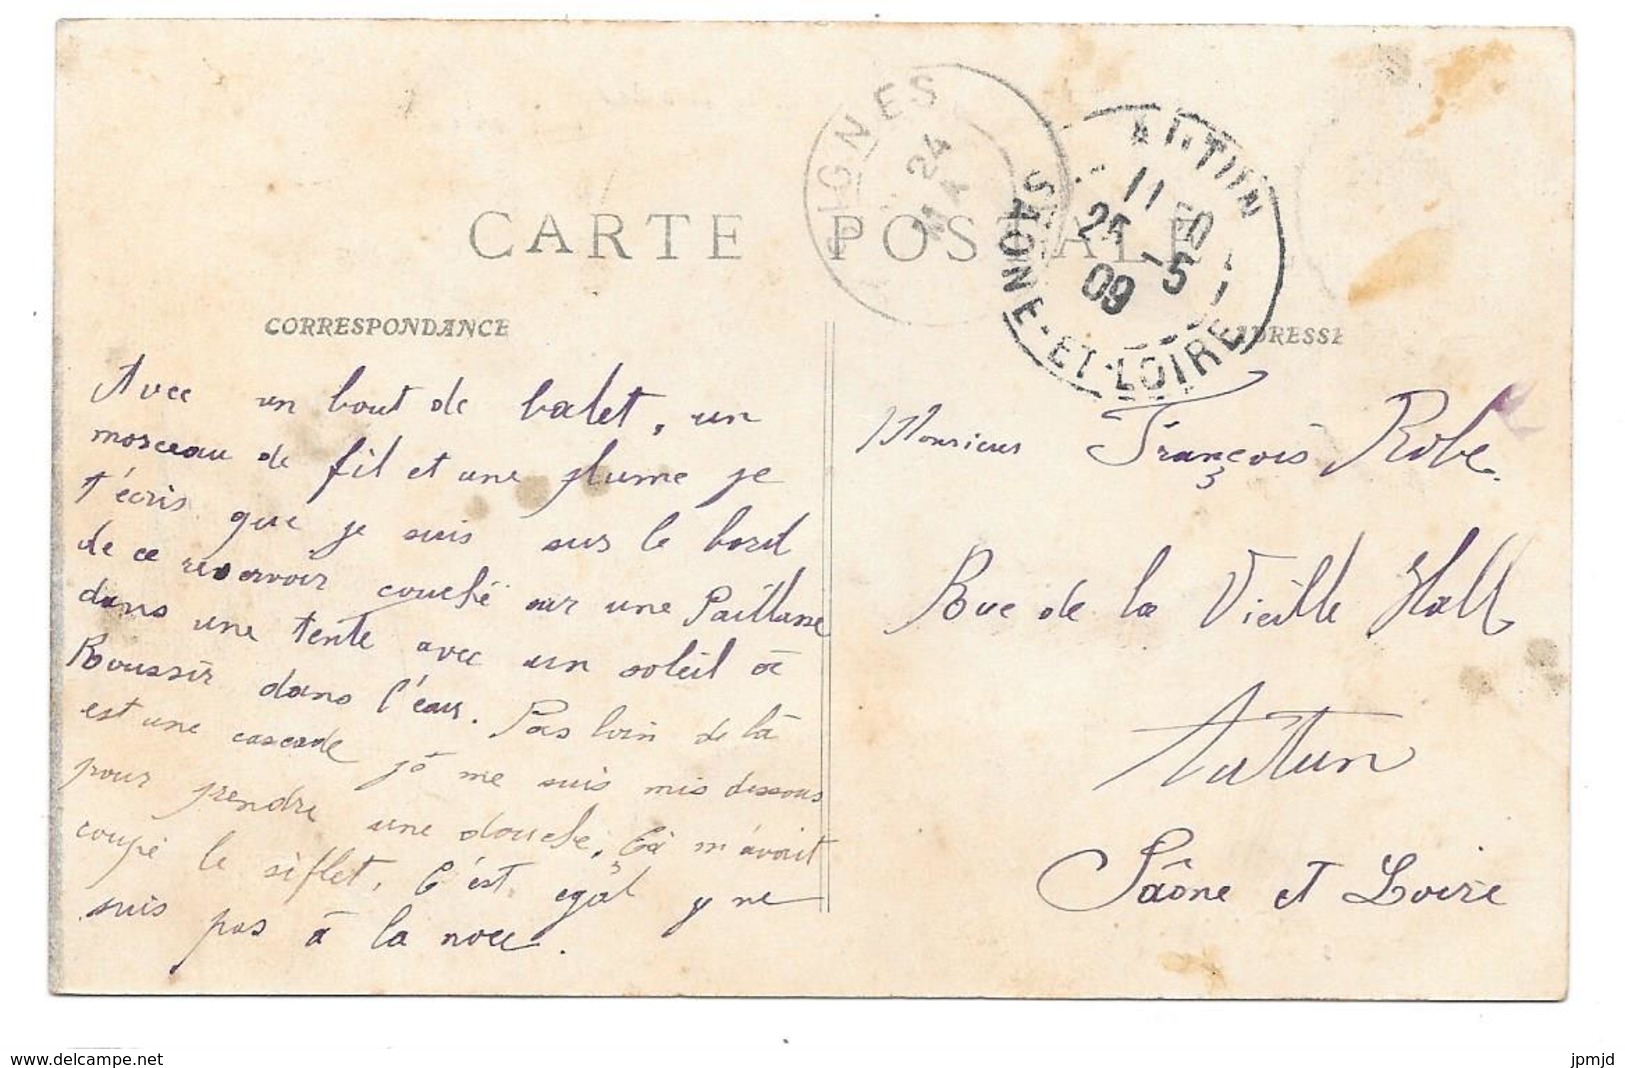 CARTE POSTALE
IGNES
24
AUTUN
11
25 -5
09
SAONE-ET-LOIRE
CORRESPONDANCE
ADRESSE
Avec un bout de balet, un
morceau de fil et une plume je
t'écris que je suis sur le bord
de ce réservoir couché sur une Paillasse
dans une tente avec un soleil à
Roussir dans l'eau. Pas loin de là
est une cascade jé me suis mis dessous
pour prendre une douche, Cà m'avait
coupé le siflet, C'est egal y ne
suis pas à la noce.
Monsieur François Robe
Rue de la Vieille Hall
Autun
Saône et Loire
www.delcampe.net
jpmjd